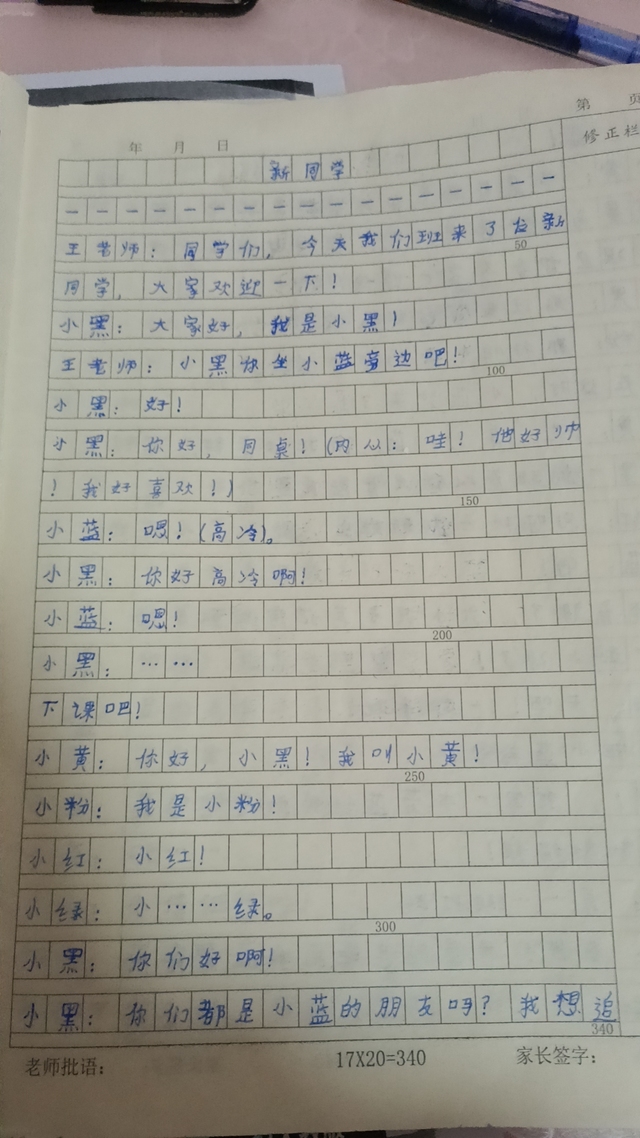 第 页
修正栏
年 月 日
新同学
王老师：同学们，今天我们班来了位新
50
同学，大家欢迎一下！
小黑：大家好，我是小黑！
王老师：小黑你坐小蓝旁边吧！
100
小黑：好！
小黑：你好，同桌！(内心：哇！他好帅
！我好喜欢！)
150
小蓝：嗯！(高冷)。
小黑：你好高冷啊！
小蓝：嗯！
200
小黑：……
下课吧！
小黄：你好，小黑！我叫小黄！
250
小粉：我是小粉！
小红：小红！
小绿：小……绿。
300
小黑：你们好啊！
小黑：你们都是小蓝的朋友吗？我想追
340
老师批语： 17X20=340 家长签字：